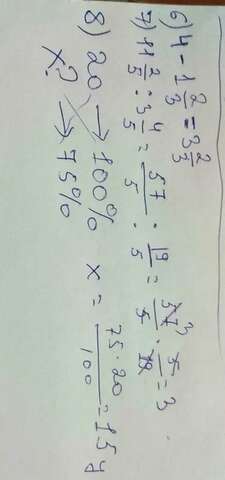 6) 4 - 1 2/3 = 3 2/3
7) 11 2/5 : 3 4/5 = 57/5 : 19/5 = 57 3/5 · 5/19 = 3
8) 20 → 100% x = 75·20/100 = 15 y
x? → 75%